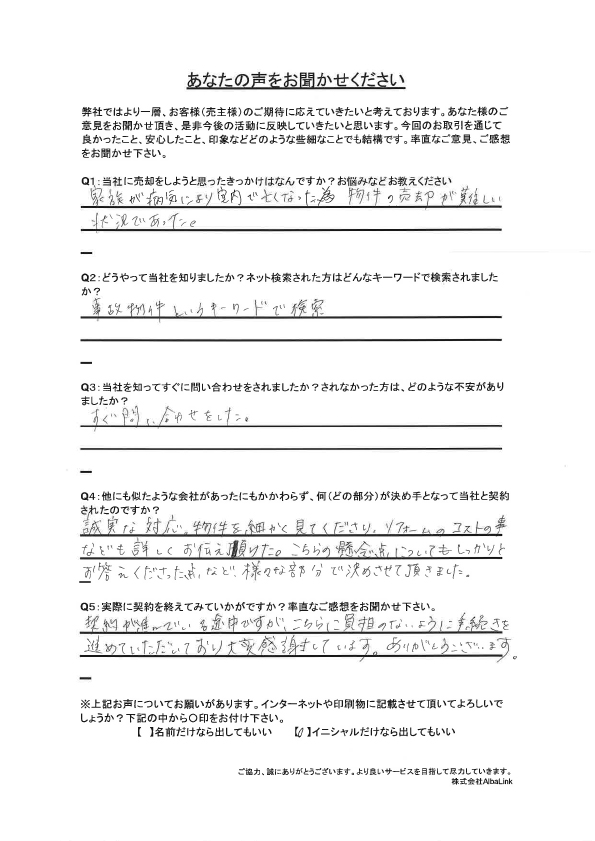 あなたの声をお聞かせください
弊社ではより一層、お客様(売主様)のご期待に応えていきたいと考えております。あなた様のご
意見をお聞かせ頂き、是非今後の活動に反映していきたいと思います。今回のお取引を通じて
良かったこと、安心したこと、印象などどのような些細なことでも結構です。率直なご意見、ご感想
をお聞かせ下さい。
Q1:当社に売却をしようと思ったきっかけはなんですか?お悩みなどお教えください
家族が病気により室内で亡くなった為 物件の売却が難しい
状況であった。
Q2:どうやって当社を知りましたか?ネット検索された方はどんなキーワードで検索されました
か?
事故物件というキーワードで検索
Q3:当社を知ってすぐに問い合わせをされましたか?されなかった方は、どのような不安があり
ましたか?
すぐ問い合わせをした。
Q4:他にも似たような会社があったにもかかわらず、何(どの部分)が決め手となって当社と契約
されたのですか?
誠実な対応。物件を細かく見てくださり、リフォームのコストの事
なども詳しくお伝え頂けた。こちらの懸念点についてもしっかりと
お答えくださった点、など、様々な部分で決めさせて頂きました。
Q5:実際に契約を終えてみていかがですか?率直なご感想をお聞かせ下さい。
契約が進んでいる途中ですが、こちらに負担のないように手続きを
進めていただいており大変感謝しています。ありがとうございます。
※上記お声についてお願いがあります。インターネットや印刷物に記載させて頂いてよろしいで
しょうか?下記の中から○印をお付け下さい。
【 】名前だけなら出してもいい 【○】イニシャルだけなら出してもいい
ご協力、誠にありがとうございます。より良いサービスを目指して尽力していきます。
株式会社AlbaLink